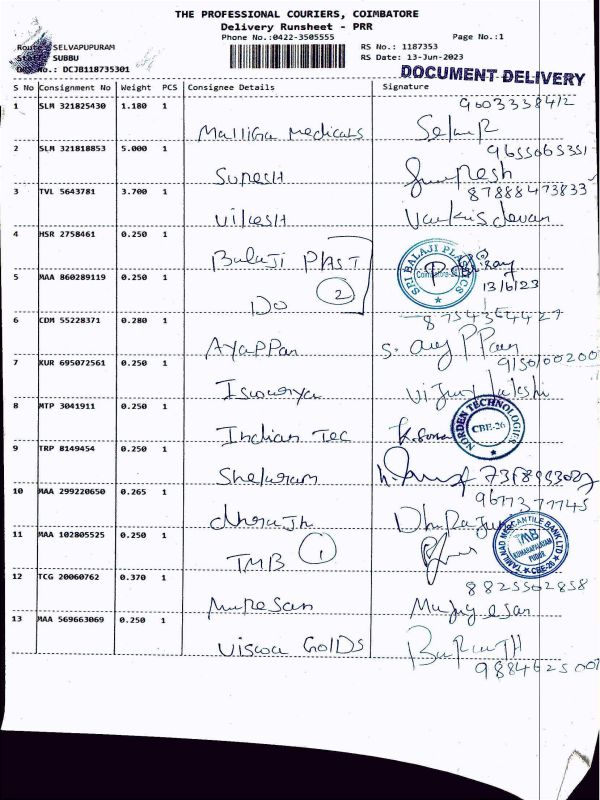 THE PROFESSIONAL COURIERS, COIMBATORE
Delivery Runsheet - PRR
Phone No.:0422-3505555 Page No.:1
Route: SELVAPUPURAM RS No.: 1187353
Staff: SUBBU RS Date: 13-Jun-2023
DRS No.: DCJB118735301 DOCUMENT DELIVERY
S No Consignment No Weight PCS Consignee Details Signature
9003338412
1 SLM 321825430 1.180 1 Malliga medicals
2 SLM 321818853 5.000 1 Suresh
9655065351
8788847383 3
3 TVL 5643781 3.700 1 Vikesh
4 HSR 2758461 0.250 1 Balaji PLAST SRI BALAJI PLASTICS
5 MAA 860289119 0.250 1 DO 2 13/6/23
6 CDM 55228371 0.280 1 Ayappan S. Ayyppan
7 KUR 695072561 0.250 1 Iswarya Vijaylakshi
9150100200
8 MTP 3041911 0.250 1 Indian Tec NORDEN TECHNOLOGIES CBE-26
9 TRP 8149454 0.250 1
10 MAA 299220650 0.265 1 dhirajh
9677377745
11 MAA 102805525 0.250 1 TMB 1 TAMILNAD MERCANTILE BANK LTD TMB KUMARAPALAYAM PUDUR CBE-26
12 TCG 20060762 0.370 1 Murugesan
8825502858
13 MAA 569663069 0.250 1 Viswa Golds
988462500